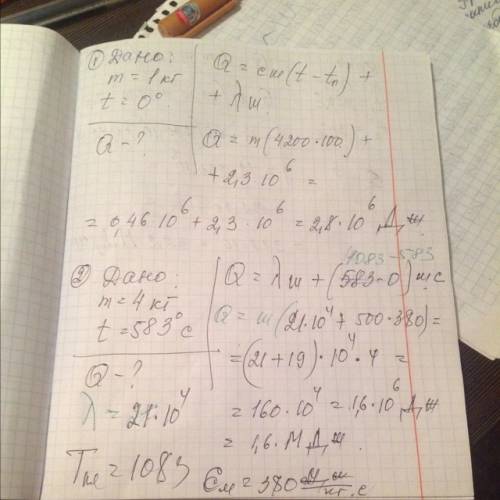 ① Дано:
m = 1 кг
t = 0°
Q - ?
Q = cm(t - tп) +
+ λm
Q = m(4200·100) +
+ 2,3·10⁶ =
= 0,46·10⁶ + 2,3·10⁶ = 2,8·10⁶ Дж
② Дано:
m = 4 кг
t = 583°c
Q - ?
λ = 21·10⁴
Tпл = 1083
1083 - 583
Q = λm + (583-0)mc
Q = m(21·10⁴ + 500·380) =
= (21 + 19)·10⁴·4 =
= 160·10⁴ = 1,6·10⁶ Дж
= 1,6 МДж.
Cм = 380 Дж/кг·с